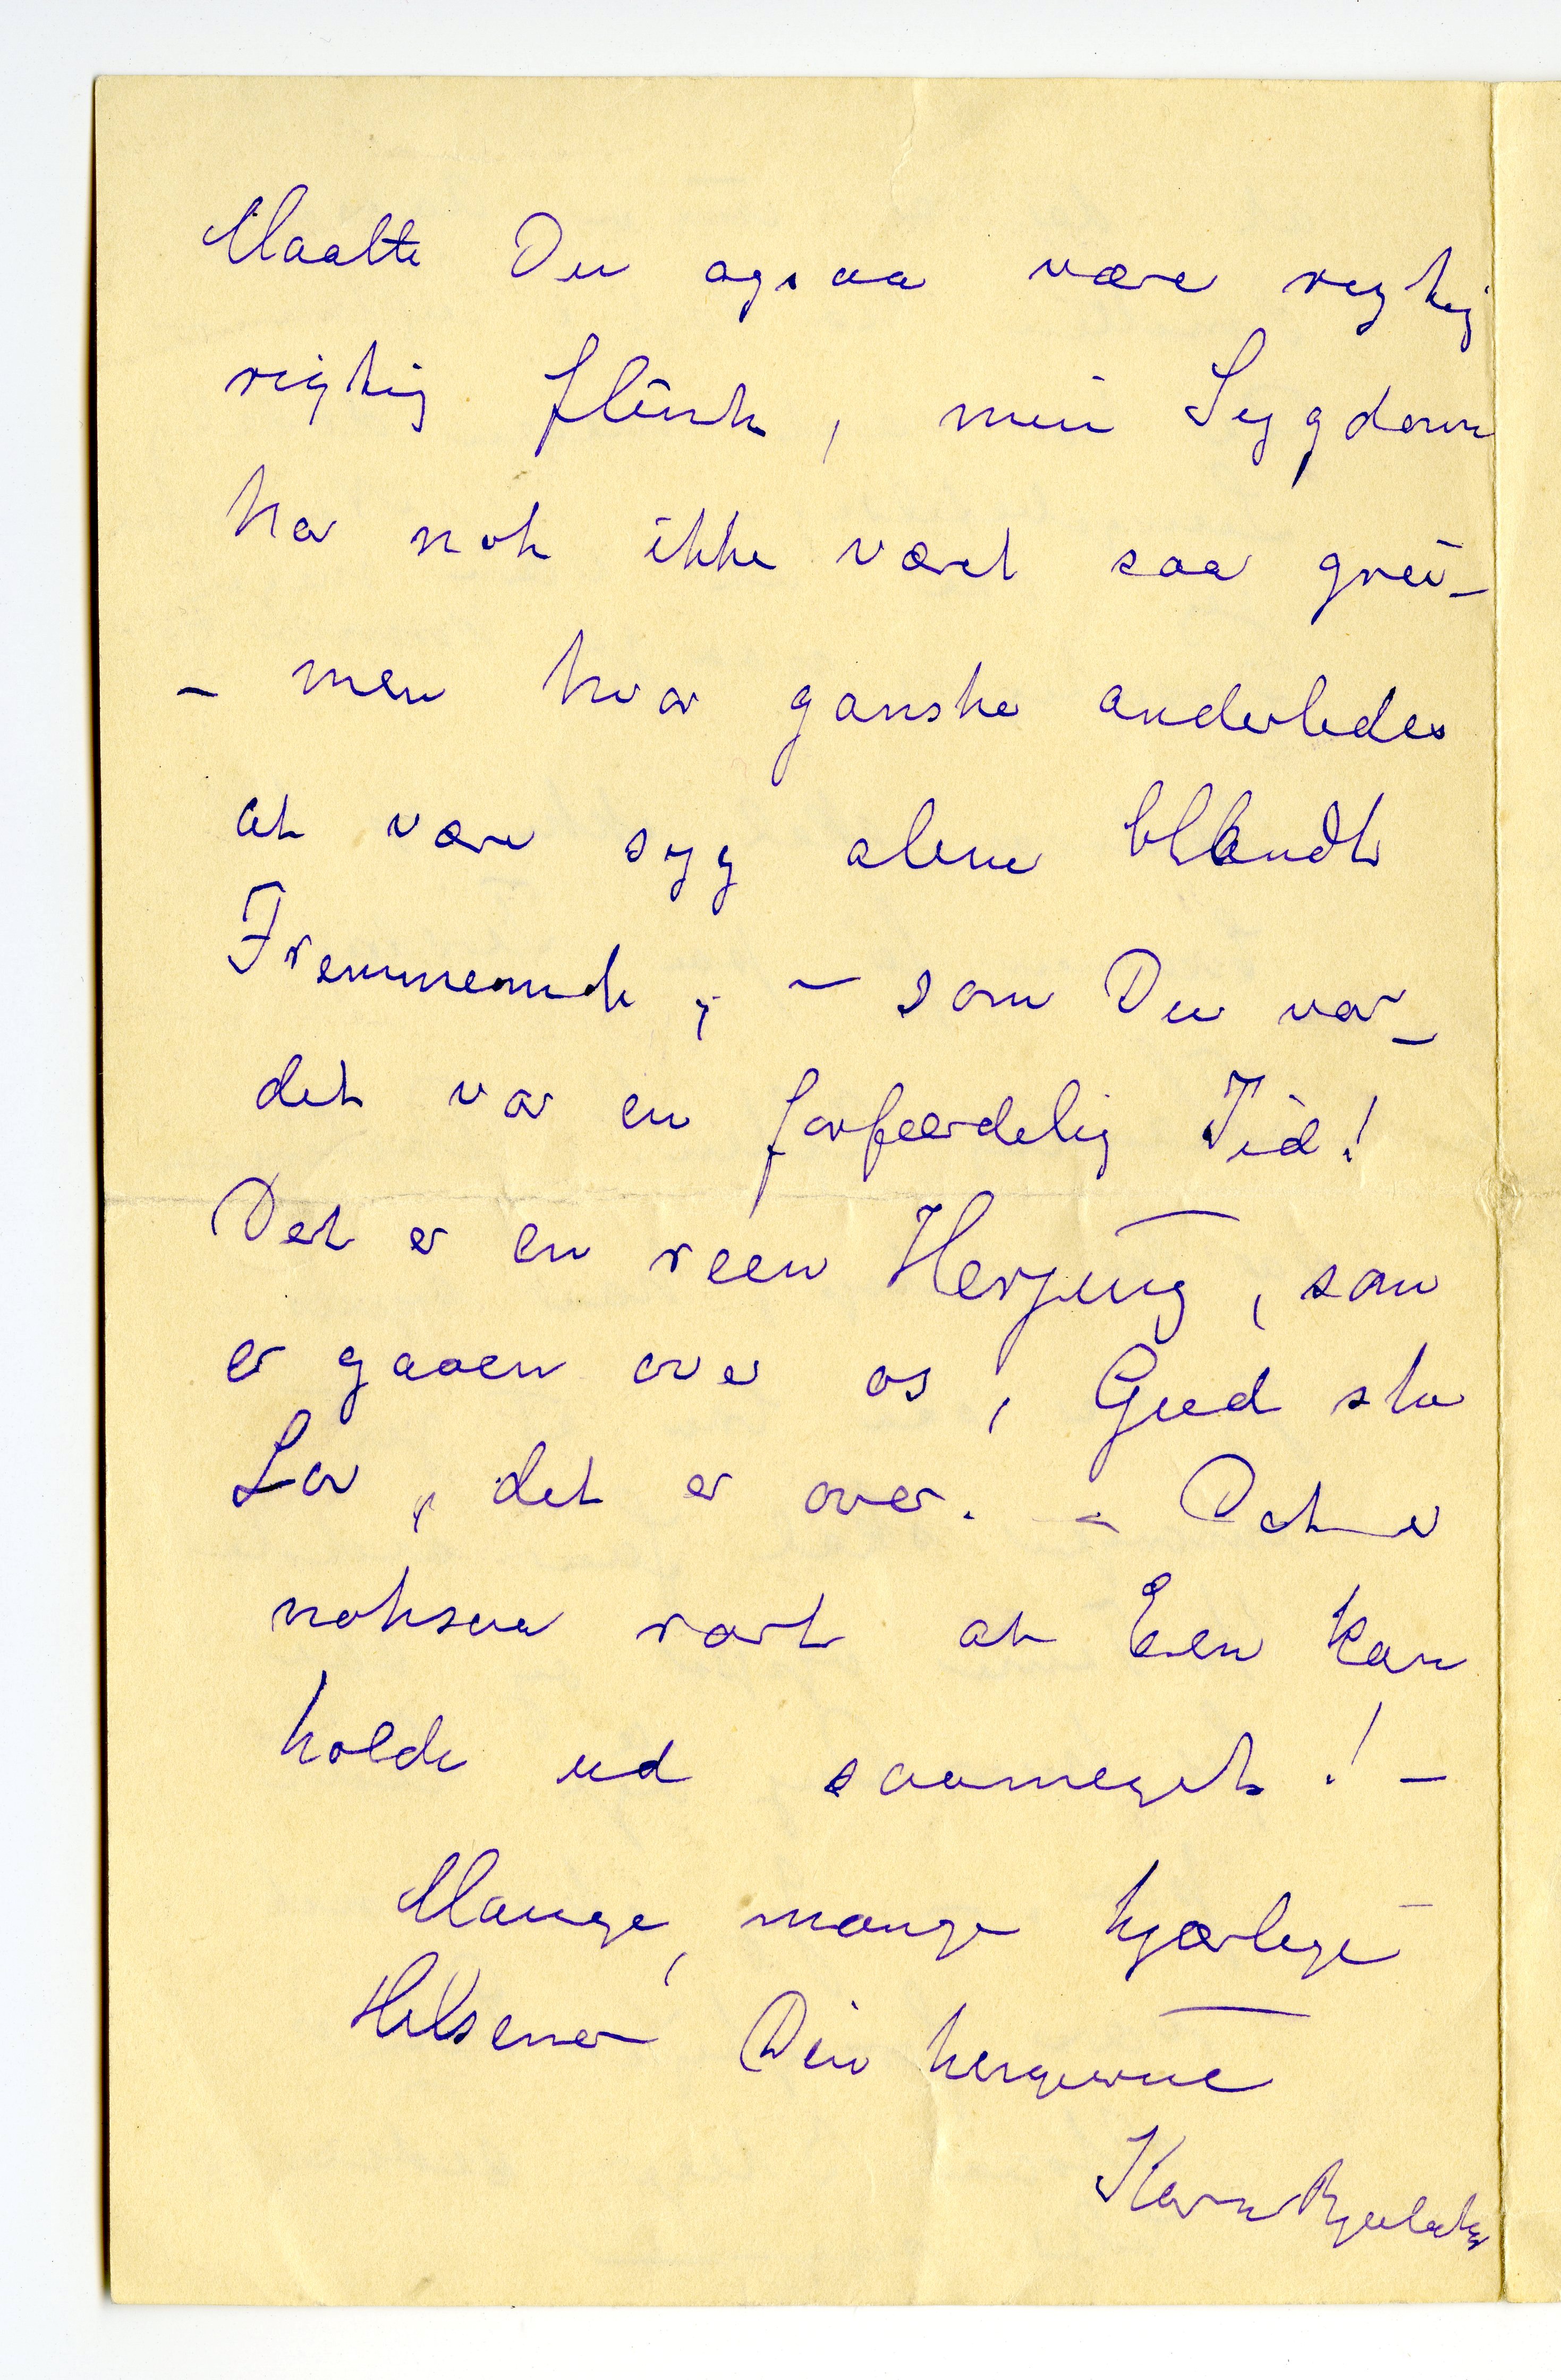 Maatte Du ogsaa være rigtig
rigtig flink, min Sygdom
har nok ikke været saa grei –
– men hvor ganske anderledes
at være syg alene blandt
Fremmende, – som Du var –
det var en forfærdelig Tid!
Det er en reen Herjing, som
er gaaen over os, Gud ske
Lov, det er over. – Det er
noksaa rart at Een kan
holde ud saameget! –
Mange, mange kjærlige
Hilsener Din hengivne
Karen